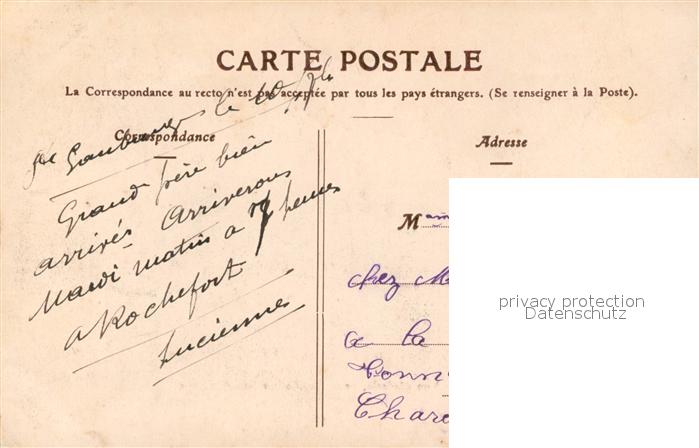 CARTE POSTALE
La Correspondance au recto n'est pas acceptée par tous les pays étrangers. (Se renseigner à la Poste).
Correspondance
le
Grand frère bien
arrivés Arriverons
Mardi matin a 7 heures
a Rochefort
Lucienne
Adresse
Mam
chez M
a la
Tonn
Char
privacy protection
Datenschutz